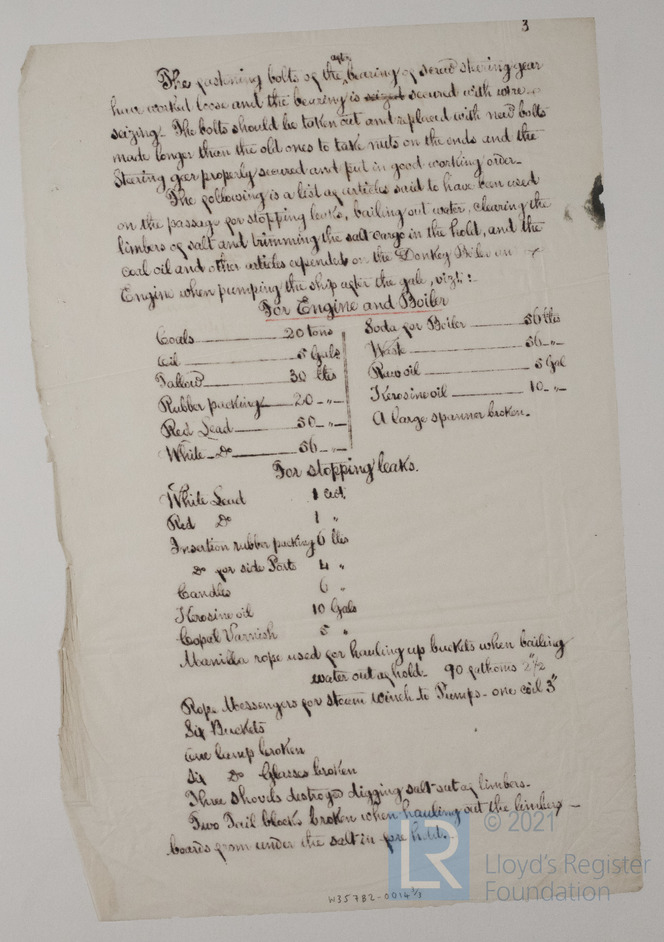 3
The fastening bolts of the after bearing of screw steering gear
have worked loose and the bearing is seized secured with wire
seizing. The bolts should be taken out and replaced with new bolts
made longer than the old ones to take nuts on the ends and the
Steering gear properly secured and put in good working order.
The following is a list of articles said to have been used
on the passage for stopping leaks, bailing out water, clearing the
limbers of salt and trimming the salt cargo in the hold, and the
coal oil and other articles expended on the Donkey Boiler an
Engine when pumping the ship after the gale, vizt:-
For Engine and Boiler
Coals 20 tons
Oil 5 Gals
Tallow 30 lbs
Rubber packing 20 - " -
Red Lead 50 - " -
White Do 56 - " -
Soda for Boiler 56 lbs
Waste 56 - " -
Raw oil 5 Gal
Kerosine oil 10 - " -
A large spanner broken.
For stopping leaks.
White Lead 1 Cwt.
Red Do 1 "
Insertion rubber packing 6 lbs
Do for side Ports 4 "
Candles 6 "
Kerosine oil 10 Gals
Copal Varnish 5 "
Manilla rope used for hauling up buckets when bailing
water out of hold. 90 fathoms 2½"
Rope Messengers for steam winch to Pumps - one coil 3"
Six Buckets
One lamp broken
Six Do Glasses broken
Three shovels destroyed digging salt out of limbers.
Two Tail blocks broken when hauling out the limber
boards from under the salt in fore hold.
© 2021
LR
Lloyd's Register
Foundation
W35782-0014 1/3